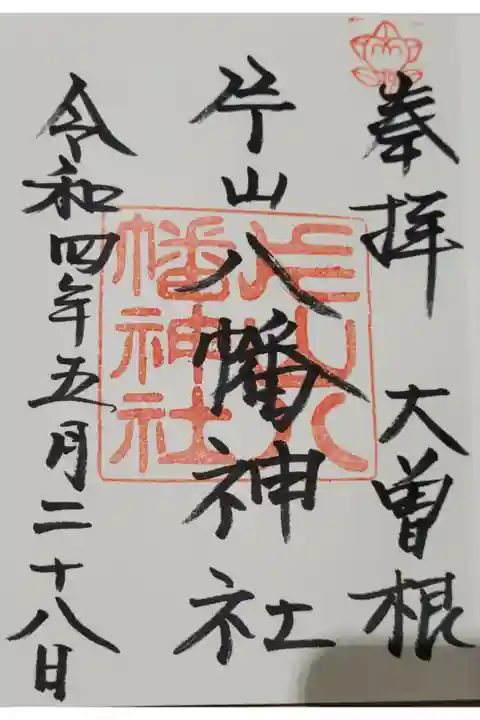 奉拝 大曽根
片山八幡神社
令和四年五月二十八日
片山八
幡神社